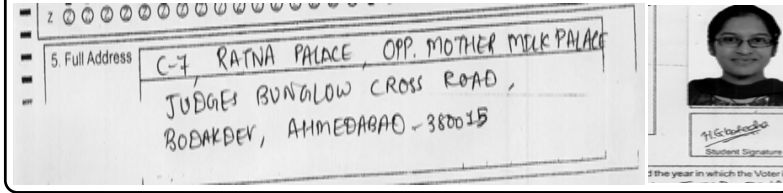 Z
5. Full Address
C-7, RATNA PALACE, OPP. MOTHER MILK PALACE
JUDGES BUNGLOW CROSS ROAD,
BODAKDEV, AHMEDABAD - 380015
Student Signature
d the year in which the Voter